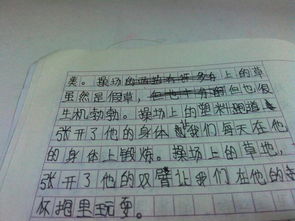 类。操场的上的草
虽然是假草，但也很
生机勃勃。操场上的塑料跑道
张开了他的身体让我们每天在他
的身体上锻炼。操场上的草地，
张开了他的双臂让我们在他的
怀抱里玩耍。